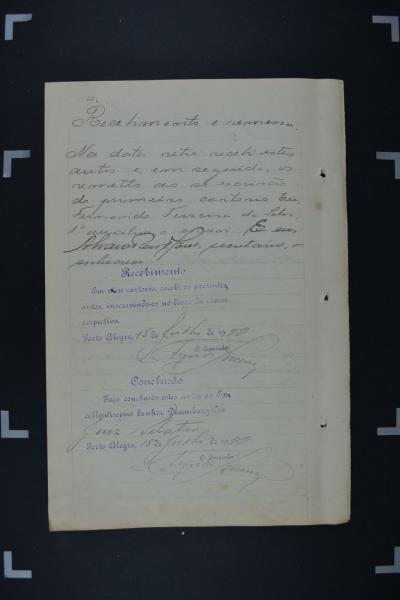 Recebimento e remessa.
Na data retro recebi estes
autos e, em seguida, os
remetto ao sr escrivão
do primeiro cartorio. Eu,
Fernando Ferreira da Silva,
1º o escrevi. E eu,
secretario, o
subscrevi.
Recebimento
Em meu cartorio, recebi os presentes
autos, inscrevendo-os no livro da classe
respectiva.
Porto Alegre, 15 de Julho de 19
O Escrivão,
Conclusão
Faço conclusos estes autos ao Ex-
cellentissimo Senhor Desembargador
Juiz Relator
Porto Alegre, 15 de Julho de 19
O Escrivão